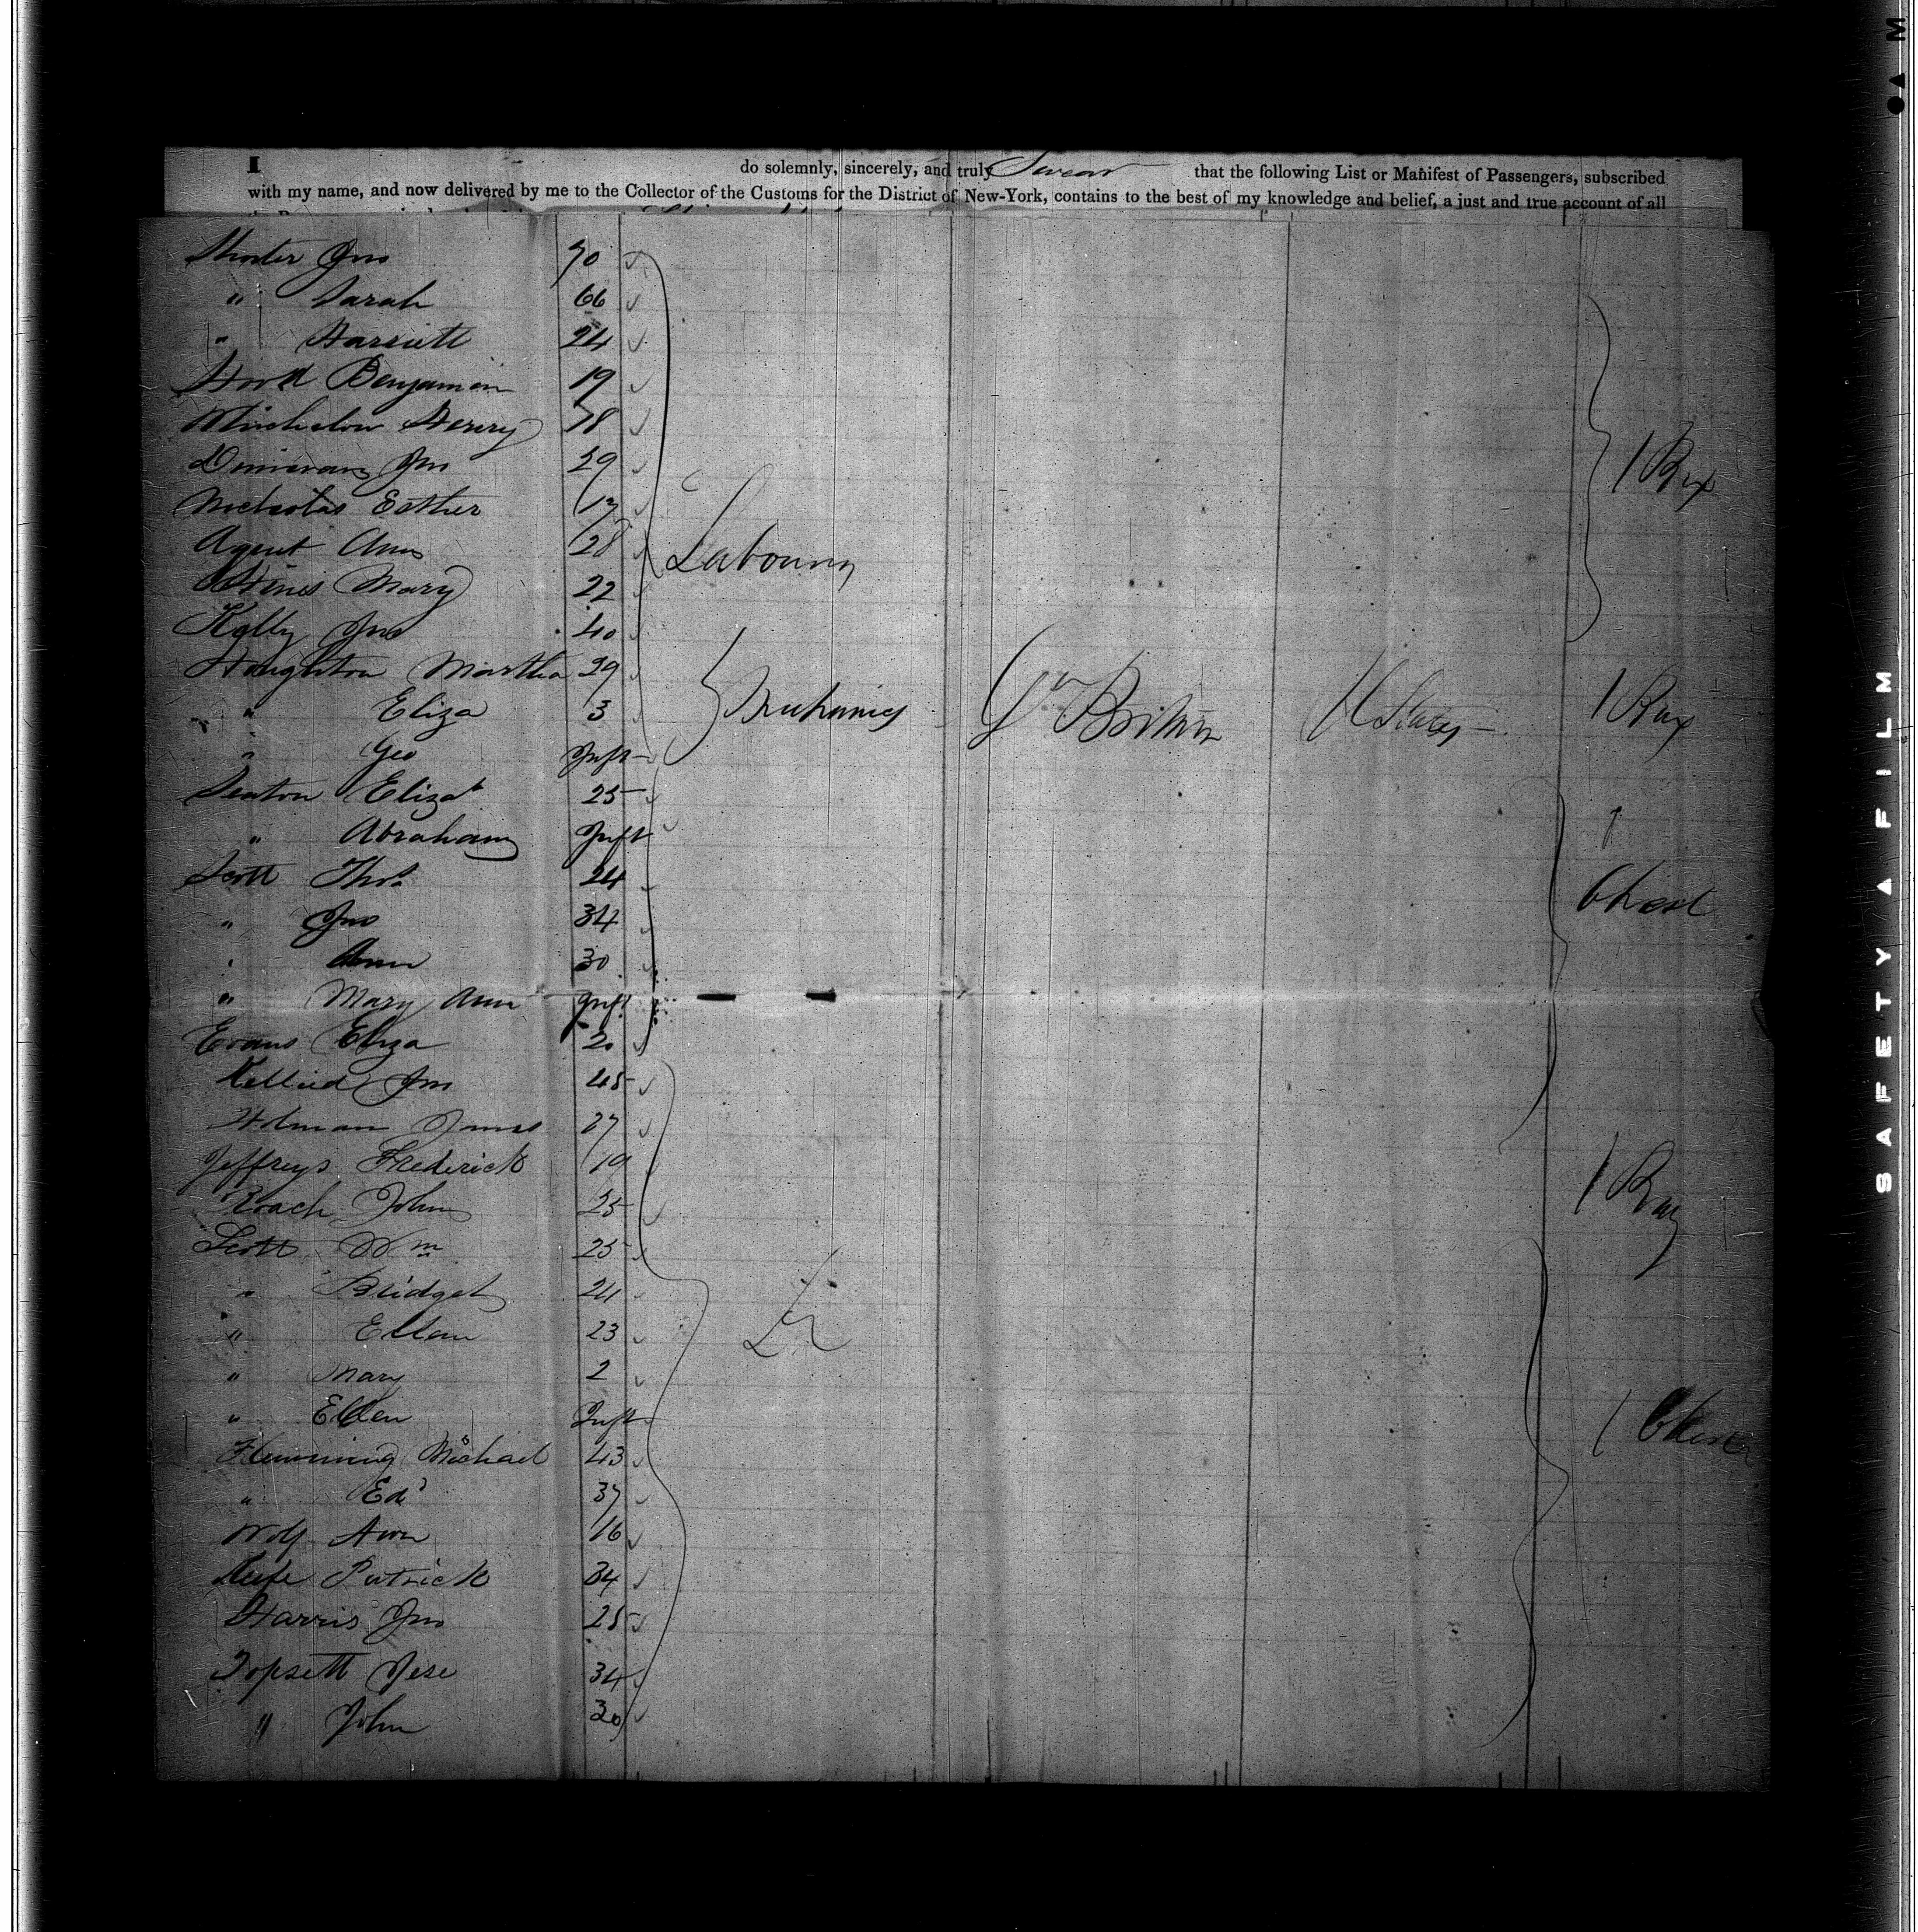 I do solemnly, sincerely, and truly Swear that the following List or Manifest of Passengers, subscribed
with my name, and now delivered by me to the Collector of the Customs for the District of New-York, contains to the best of my knowledge and belief, a just and true account of all
Jno 70
" Sarah 66
" Harriett 24
Benjamin 19
Henry 18
Jno 29
Nicholas Esther 17
Agent Ann 28
Hines Mary 22
Kelly Jno 40
Houghton Martha 29
" Eliza 3
" Geo Inft
Seaton Elizat 25
" Abraham Inft
Scott Thos 24
" Jno 34
" Ann 30
" Mary Ann Inft
Evans Eliza 20
Jno 45
Holman James 27
Jeffreys Frederick 19
Roach John 25
Scott Wm 25
" Bridget 24
" Ellen 23
" Mary 2
" Ellen Inft
Flemming Michael 43
" Edd 37
Wolf Ann 16
Patrick 34
Harris Jno 25
Topsett Jese 34
" John 30
Labourers
Mechanics
Gt Britain
U States
1 Box
1 Box
Chest
1 Bag
1 Chest
SAFETY ▲ FILM